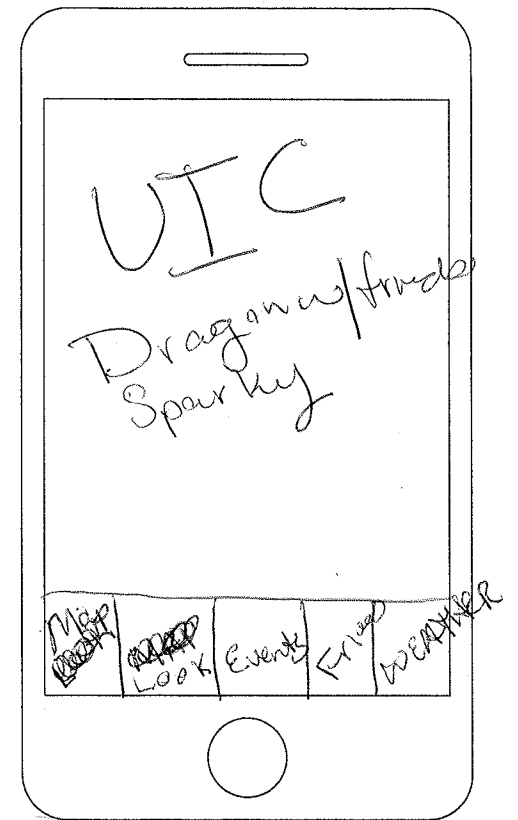 UIC
Dragon w/frnds
Sparky
Map
LOOK
Events
WEATHER